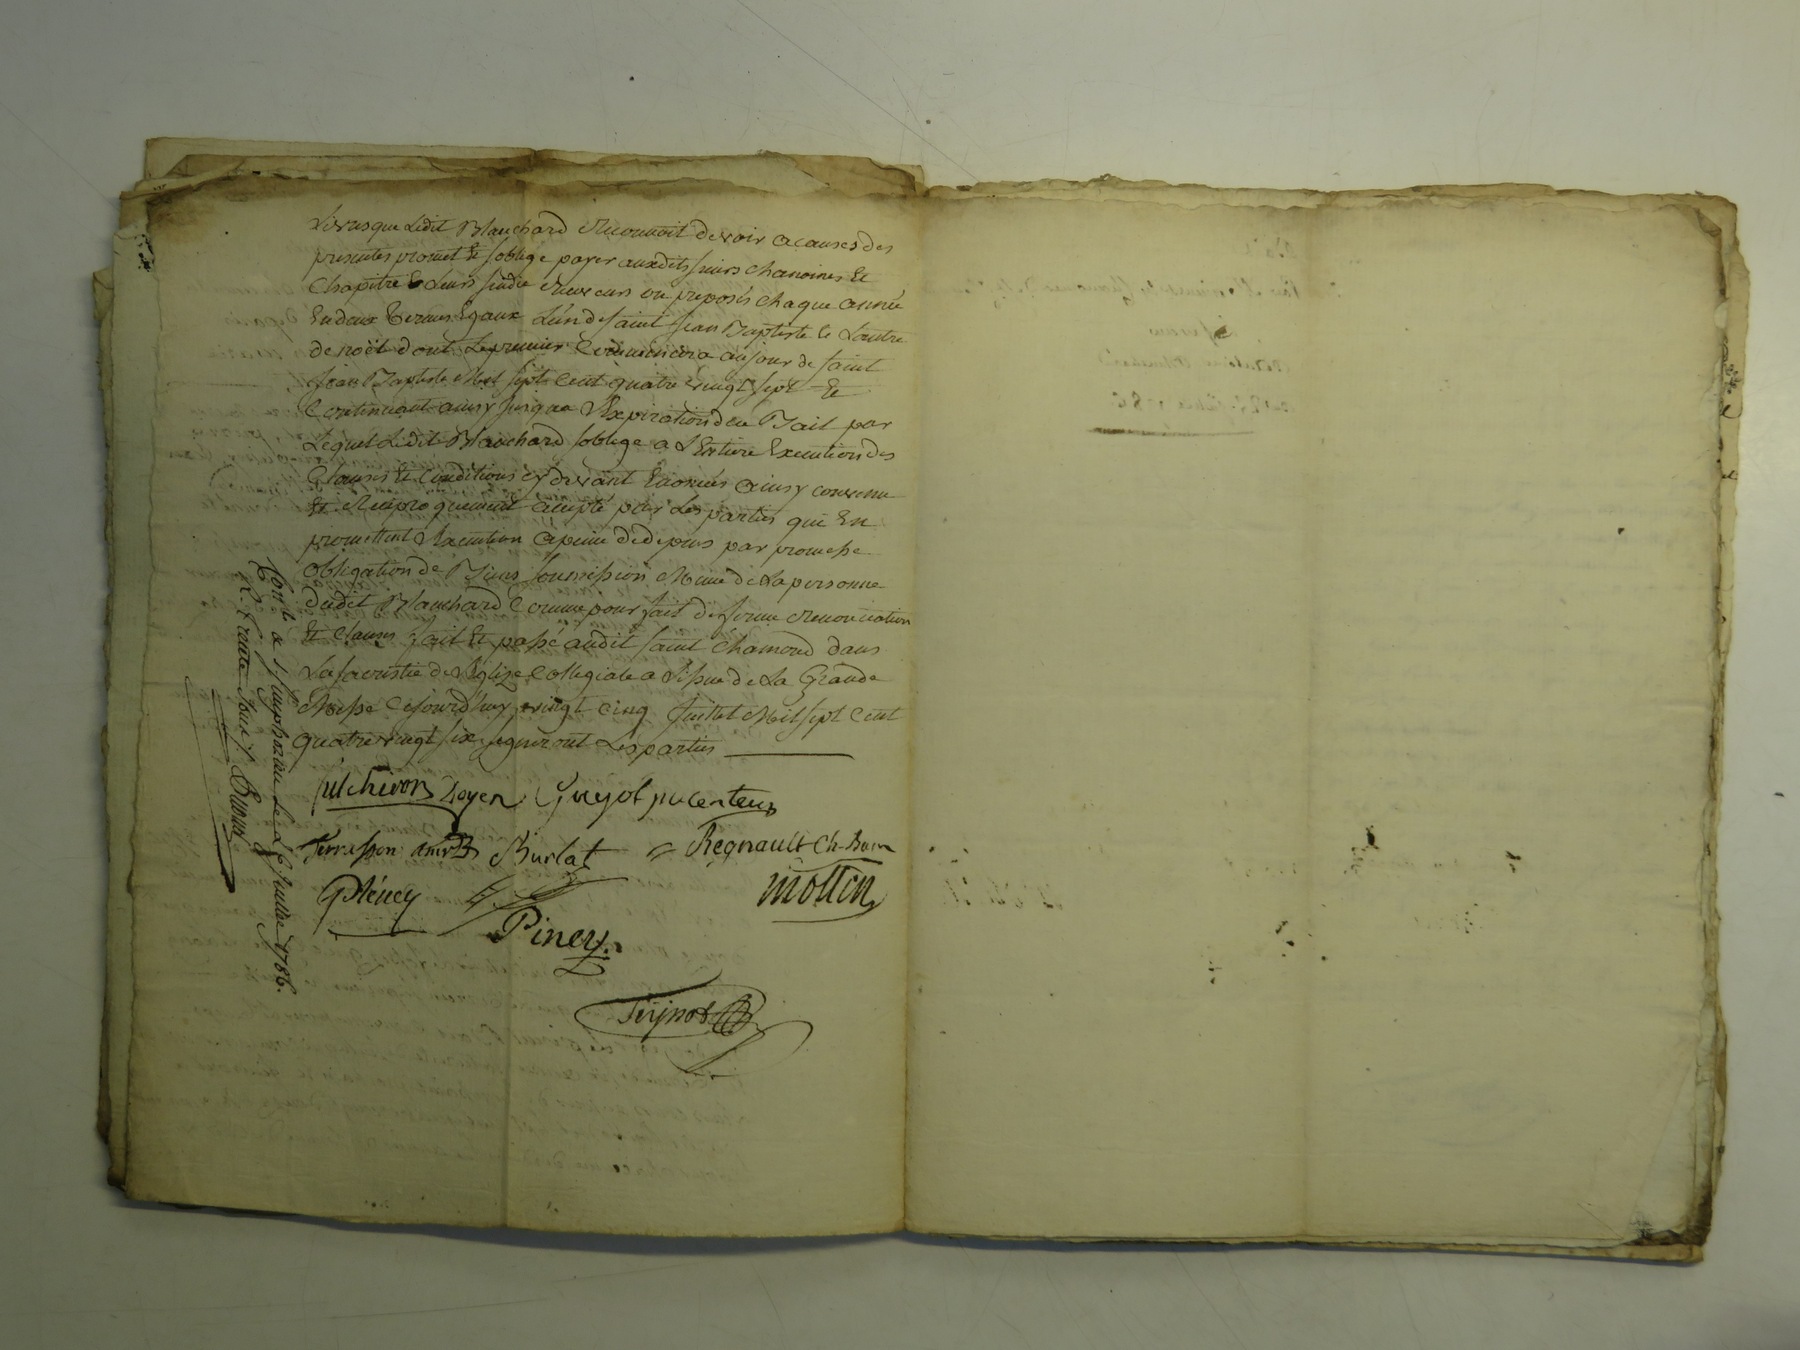 Livres que Ledit Blanchard Reconnoit devoir a causes des
presentes promet et soblige payer auxdits sieurs chanoines Et
Chapitre & Leurs sindic Receveurs ou preposés chaque année
En deux termes Egaux Lun de saint Jean Baptiste & Lautre
de noël dont Le premier Commencera au jour de saint
Jean Baptiste Mil sept Cent quatre vingt sept Et
Continuent ainsy jusqua Lexpiration du Bail par
Lequel Ledit Blanchard soblige a LEntiere Execution des
Clauses Et Conditions cy devant Enoncées ainsy convenu
Et Reciproquement accepté par Les parties qui En
promettent Lexecution a peine de depens par promesse
obligation de Biens soumission Meme de La personne
dudit Blanchard Comme pour fait de ferme Renonciation
Et Clauses fait Et passé audit saint Chamond dans
La sacristie de Léglise Collegiale a Lissue de La Grande
Messe Cejourdhuy vingt cinq Juillet Mil sept Cent
quatre vingt six signeront Les parties
Doyen Guyot precenteur
Terrasson Burlat Regnault Ch. Baron
Pléney mottin
Piney
Teijnot
Conlé a st simphorien Le Juillet 1786.
R. trente sous